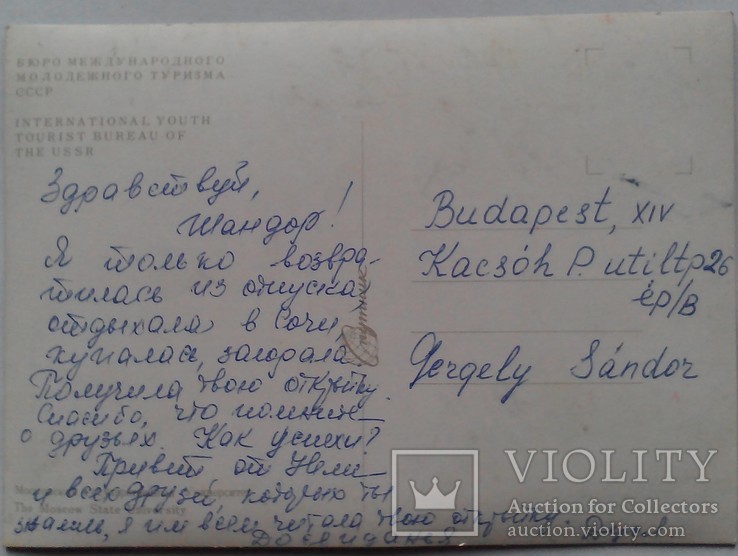 БЮРО МЕЖДУНАРОДНОГО
МОЛОДЕЖНОГО ТУРИЗМА
СССР
INTERNATIONAL YOUTH
TOURIST BUREAU OF
THE USSR
Здравствуй,
Шандор!
Я только возвра-
тилась из отпуска
отдыхала в Сочи,
купалась, загорала.
Получила твою открытку.
Спасибо, что помнишь
о друзьях. Как успехи?
Привет от Нели
и всех друзей, которых ты
я им всем читала твою открытку.
До свидания
The Moscow State University
Budapest, XIV
Kacsóh P. utiltp 26
ép/B
Gergely Sándor
VIOLITY
Auction for Collectors
auction.violity.com